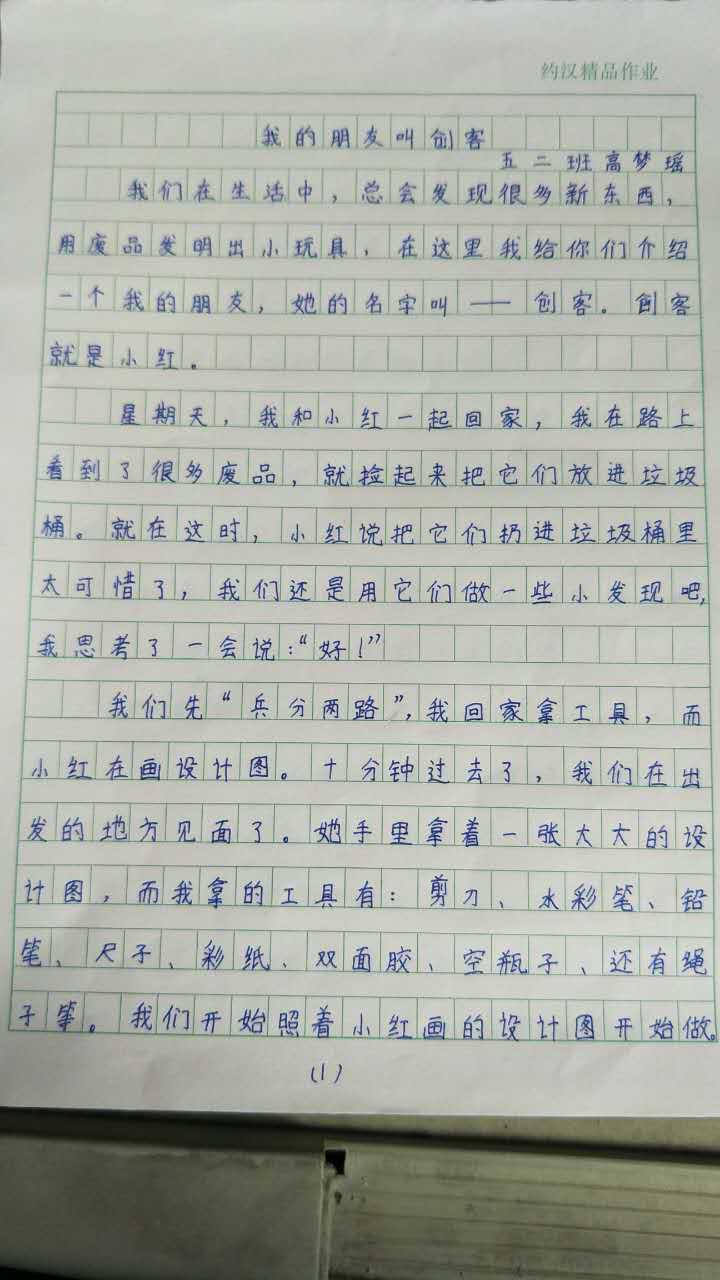 约汉精品作业
我的朋友叫创客
五二班高梦瑶
我们在生活中，总会发现很多新东西，
用废品发明出小玩具，在这里我给你们介绍
一个我的朋友，她的名字叫——创客。创客
就是小红。
星期天，我和小红一起回家，我在路上
看到了很多废品，就捡起来把它们放进垃圾
桶。就在这时，小红说把它们扔进垃圾桶里
太可惜了，我们还是用它们做一些小发现吧，
我思考了一会说：“好！”
我们先“兵分两路”，我回家拿工具，而
小红在画设计图。十分钟过去了，我们在出
发的地方见面了。她手里拿着一张大大的设
计图，而我拿的工具有：剪刀、水彩笔、铅
笔、尺子、彩纸、双面胶、空瓶子、还有绳
子等。我们开始照着小红画的设计图开始做。
（1）